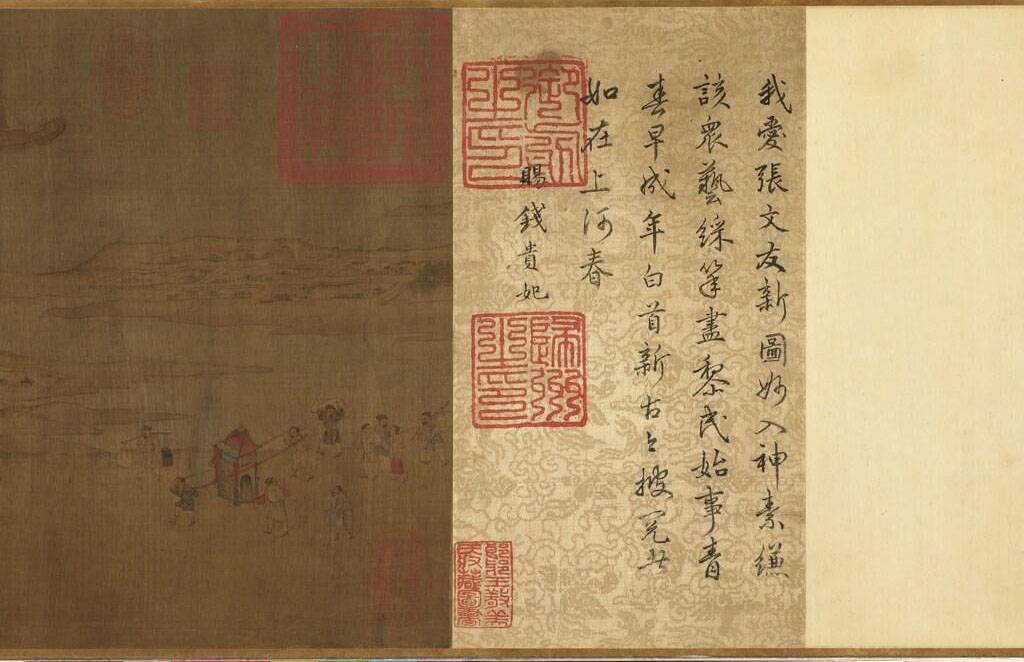 我愛張文友新圖妙入神素縑
該衆藝綵筆盡黎民始事青
春早成年白首新古今披覽此
如在上河春
賜錢貴妃